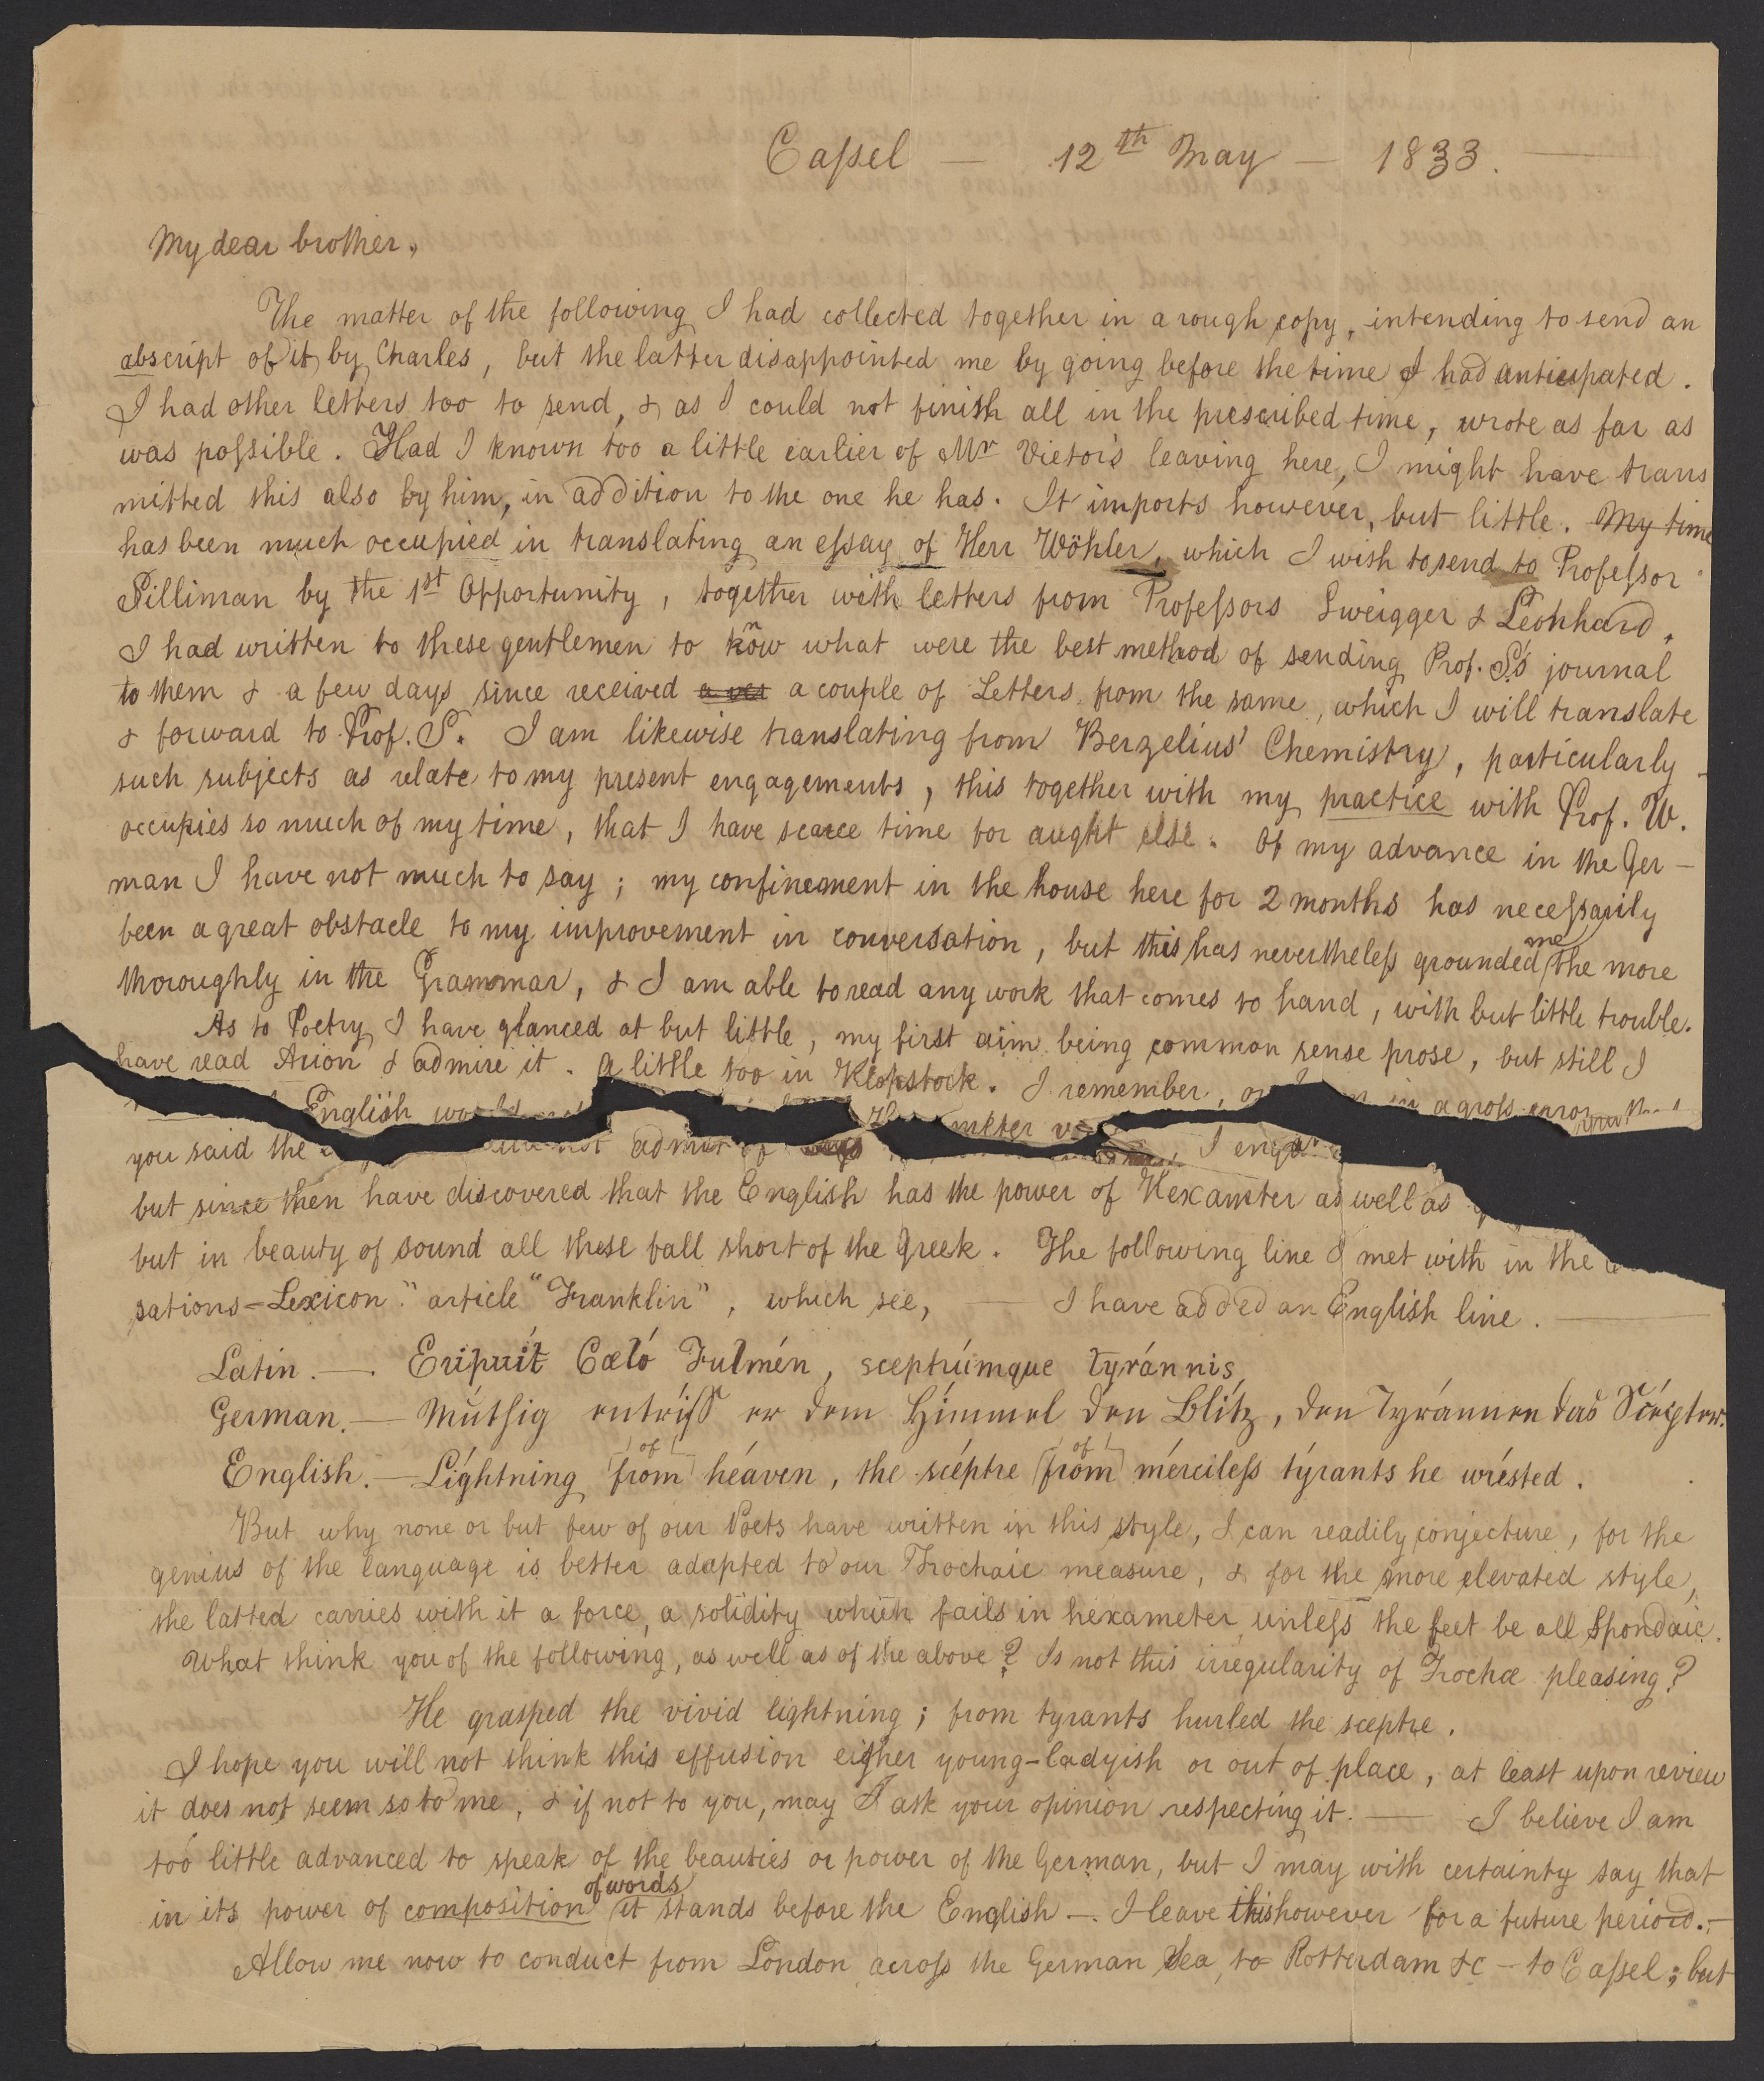 Caſsel — 12th May — 1833. —
My dear brother,
The matter of the following I had collected together in a rough copy, intending to send an
abscript of it by Charles, but the latter disappointed me by going before the time I had anticipated.
I had other letters too to send, & as I could not finish all in the prescribed time, wrote as far as
was poſsible. Had I known too a little earlier of Mr Vietor's leaving here, I might have trans
mitted this also by him, in addition to the one he has. It imports however, but little. My time
has been much occupied in translating an eſsay of Herr Wöhler, which I wish to send to Profeſsor
Silliman by the 1st Opportunity, together with letters from Profeſsors Sweigger & Leonhard.
I had written to these gentlemen to know what were the best method of sending Prof. S's journal
to them & a few days since received a couple of Letters from the same, which I will translate
& forward to Prof. S. I am likewise translating from Berzelius' Chemistry, particularly
such subjects as relate to my present engagements, this together with my practice with Prof. W.
occupies so much of my time, that I have scarce time for aught else. Of my advance in the Ger-
man I have not much to say; my confinement in the house here for 2 months has neceſsarily
been a great obstacle to my improvement in conversation, but this has nevertheleſs grounded me the more
thoroughly in the Grammar, & I am able to read any work that comes to hand, with but little trouble.
As to Poetry I have glanced at but little, my first aim being common sense prose, but still I
have read Arion & admire it. A little too in Klopstock. I remember, or in a groſs error
you said the English would not admit of meter I
but since then have discovered that the English has the power of Hexameter as well as
but in beauty of sound all these fall short of the Greek. The following line I met with in the
sations=Lexicon." article "Franklin", which see, — I have added an English line. —
Latin. —. Eripuít Cœló Fulmén, sceptrúmque tyránnis,
German. — Múthig entríſs er dem Hímmel den Blítz, den Tyránnen das Scépter.
English. — Líghtning from of héaven, the scéptre from of mércileſs týrants he wrésted.
But why none or but few of our Poets have written in this style, I can readily conjecture, for the
genius of the language is better adapted to our Trochaic measure, & for the more elevated style,
the latted carries with it a force, a solidity which fails in hexameter, unleſs the feet be all Spondaic.
What think you of the following, as well as of the above? Is not this irregularity of Trochæ pleasing?
He grasped the vivid lightning; from tyrants hurled the sceptre.
I hope you will not think this effusion either young-ladyish or out of place, at least upon review
it does not seem so to me, & if not to you, may I ask your opinion respecting it. — I believe I am
too little advanced to speak of the beauties or power of the German, but I may with certainty say that
in its power of composition of words it stands before the English —. I leave this however for a future period. —
Allow me now to conduct from London acroſs the German Sea, to Rotterdam &c — to Caſsel; but